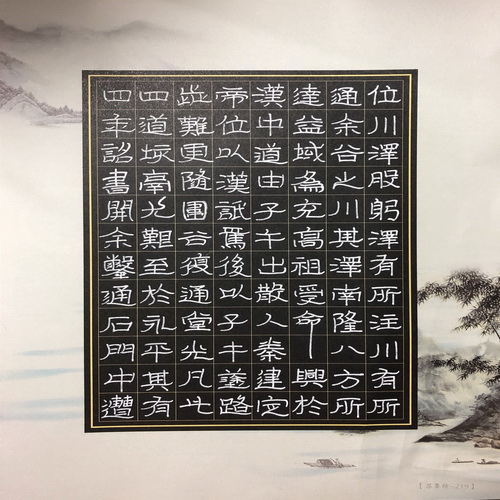 位川澤股躬澤有所注川有所
通余谷之川其澤南隆八方所
達益域為充高祖受命興於
漢中道由子午出散入秦建定
帝位以漢詆焉後以子午途路
歰難更隨圍谷復通堂光凡此
四道垓鬲尤艱至於永平其有
四年詔書開余鑿通石門中遭